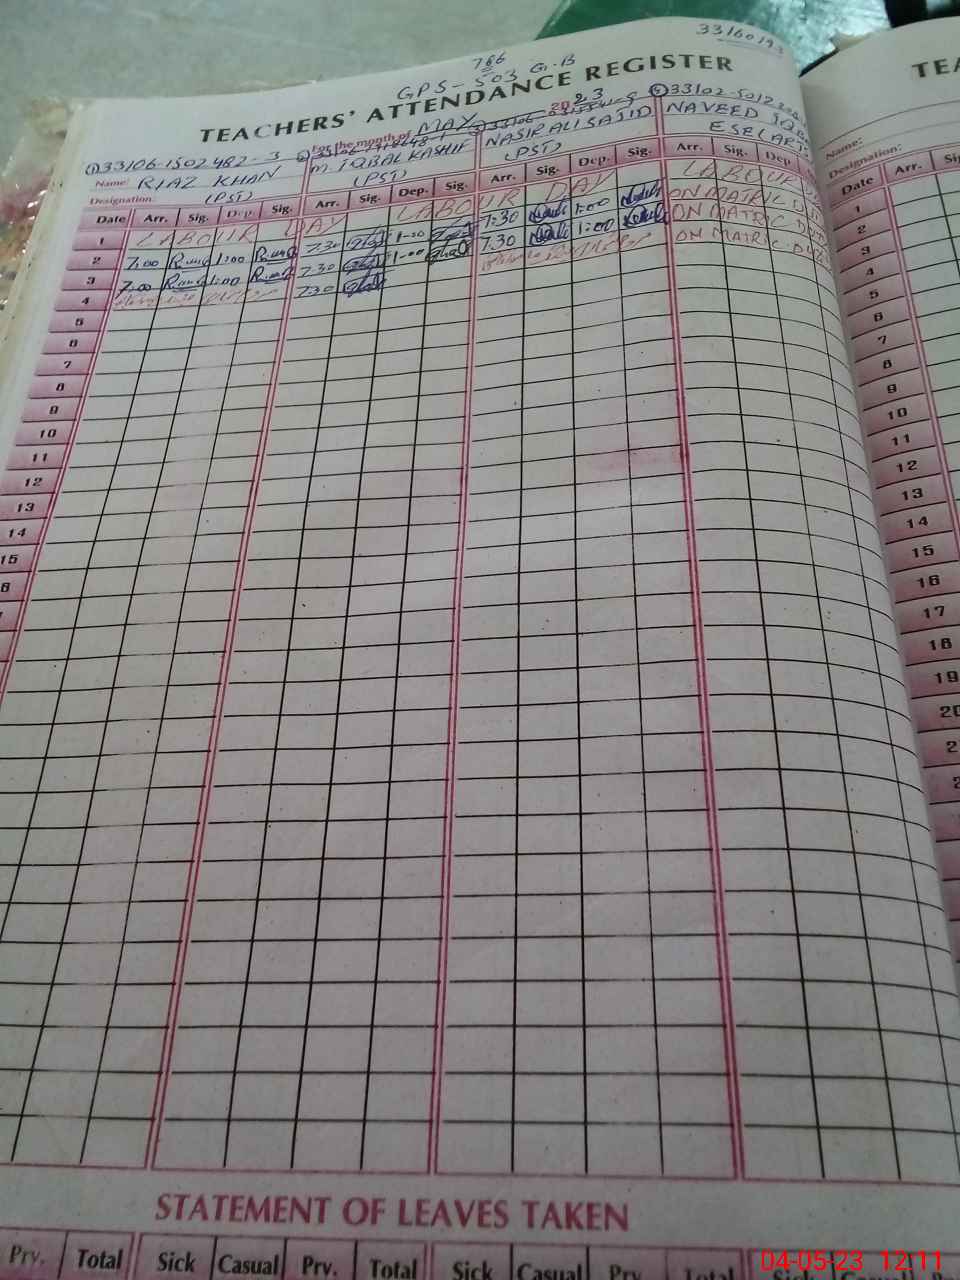 33160193
786
GPS-503 G.B
TEACHERS' ATTENDANCE REGISTER
For the month of MAY 2023
① 33106-1502482-3
④ 33102-5012
Name: RIAZ KHAN M. IQBAL KASHIF NASIR ALI SAJID NAVEED IQBA
Designation: (PST) (PST) (PST) ESE(ART
Date Arr. Sig. Dep. Sig. Arr. Sig. Dep. Sig. Arr. Sig. Dep. Sig. Arr. Sig. Dep
1 LABOUR DAY LABOUR DAY LABOUR
2 7:00 1:00 7:30 1:00 7:30 1:00 ON MATRIC DUTY
3 7:00 1:00 7:30 1:00 7:30 1:00 ON MATRIC DUTY
4 7:30 ON MATRIC DUTY
5
6
7
8
9
10
11
12
13
14
15
STATEMENT OF LEAVES TAKEN
Prv. Total Sick Casual Prv. Total Sick Casual Prv. Total
TEA
Name:
Designation:
Date Arr. Sig
1
2
3
4
5
6
7
8
9
10
11
12
13
14
15
16
17
18
19
20
04-05-23 12:11